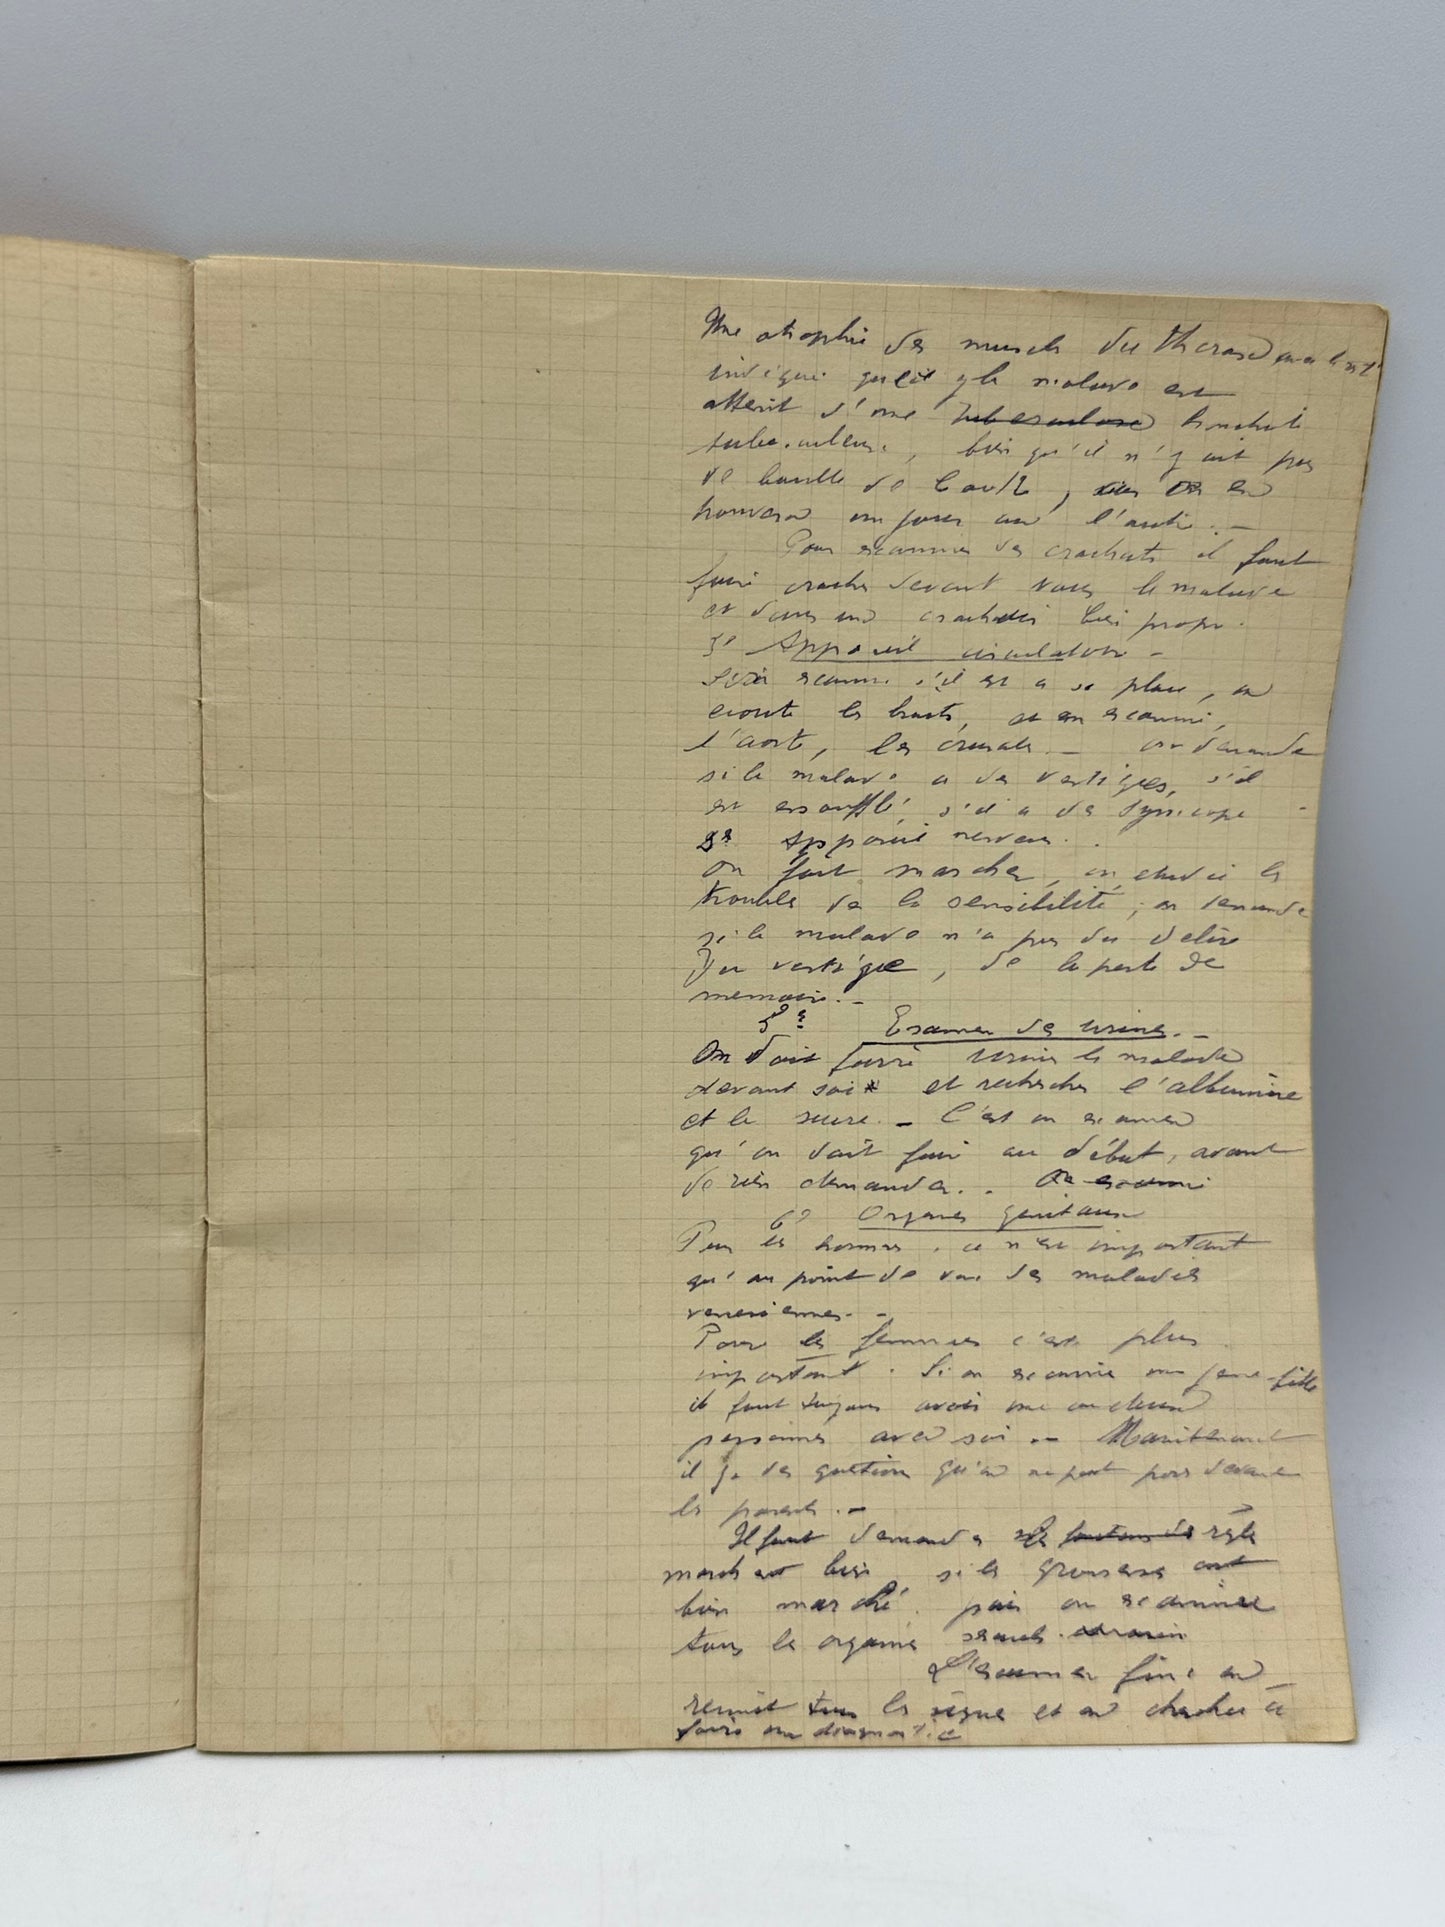 Une atrophie des muscles du thorax
indique que le malade est
atteint d'une tuberculose bronchite
tuberculeuse, bien qu'il n'y ait pas
de bacille de Koch, on en
trouvera un jour ou l'autre. -
Pour examiner des crachats il faut
faire cracher devant vous le malade
et dans un crachoir bien propre.
Appareil circulatoire -
examine s'il est à sa place, on
écoute les bruits, et on examine,
l'aorte, les crurales. - on demande
si le malade a des vertiges, s'il
est essoufflé, s'il a des syncope
Appareil nerveux.
On fait marcher, on étudie les
troubles de la sensibilité, on demande
si le malade n'a pas du délire
Du vertige, de la perte de
mémoire. -
5° Examen des urines. -
On doit faire uriner le malade
devant soi et rechercher l'albumine
et le sucre. - C'est un examen
qu'on doit faire au début, avant
de rien demander. . On examine
6° Organes génitaux
Pour les hommes, ce n'est important
qu'au point de vue des maladies
vénériennes. -
Pour les femmes c'est plus
important. Si on examine une jeune fille
il faut toujours avoir une ou deux
personnes avec soi. - Maintenant
il y a des questions qu'on ne peut poser devant
les parents. -
Il faut demander si les règles
marchent bien, si les grossesses ont
bien marché. puis on examine
tous les organes
L'examen fini on
réunit tous les signes et on cherche à
faire un diagnostic